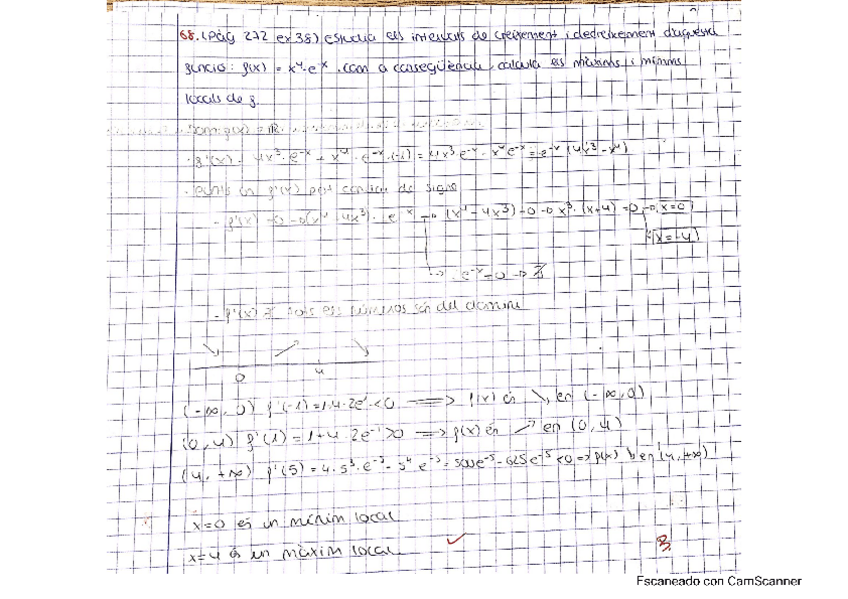 68. (Pàg 272 ex 38) estudia els intervals de creixement i decreixement d'aquesta
funció: f(x) = x⁴·e⁻ˣ. com a conseqüència, calcula els màxims i mínims
locals de f.
· Dom f(x) = ℝ
· f'(x) = 4x³·e⁻ˣ + x⁴·e⁻ˣ·(-1) = 4x³e⁻ˣ - x⁴e⁻ˣ = e⁻ˣ(4x³-x⁴)
· punts on f'(x) pot canviar de signe
- f'(x) = 0 → (x⁴ 4x³)· e⁻ˣ → (x⁴ - 4x³) = 0 → x³·(x+4) = 0 → x=0
x=-4
e⁻ˣ = 0 → ∄
- f'(x) ∄ tots els números són del domini
0 4
(-∞, 0) f'(-1) = 1·4·2e¹ < 0 ⟹ f(x) és ↘ en (-∞, 0)
(0, 4) f'(1) = 1+4·2e⁻¹ > 0 ⟹ f(x) és ↗ en (0, 4)
(4, +∞) f'(5) = 4·5³·e⁻⁵ - 5⁴·e⁻⁵ = 500e⁻⁵ - 625e⁻⁵ < 0 ⇒ f(x) ↘ en (4, +∞)
x=0 és un mínim local
x=4 és un màxim local.
3
Escaneado con CamScanner